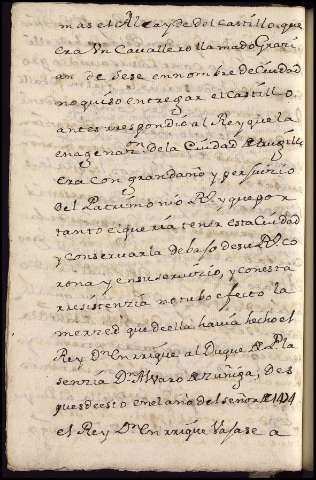 mas el Alcayde del Castillo, que
era Un Cavallero llamado Graci
an de Sese en nombre de Ciudad
no quiso entregar el Castillo,
antes rrespondio al Rey que la
enagenazn. de la Ciudad de Tuxillo
era con gran daño y perjuizio
del Patrimonio Rl. y que por
tanto el queria tener esta Ciudad
y Conservarla debajo de su Rl. Co
rona y en su servizio, y con esta
rresistenzia no tubo efecto la
merzed que de ella havia hecho el
Rey Dn. Enrrique al Duque de Pla
senzia Dn. Alvaro de Zuñiga; des
pues de esto en el año del señor de 1474
el Rey Dn. Enrrique Vajase a